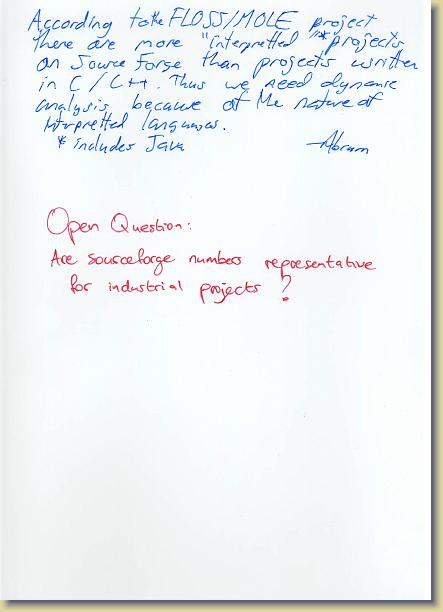 According to the FLOSS/MOLE project
there are more "interpretted"* projects
on Source Forge than projects written
in C / C++. Thus we need dynamic
analysis because of the nature of
interpretted languages.
* includes Java -Abram
Open Question:
Are sourceforge numbers representative
for industrial projects ?